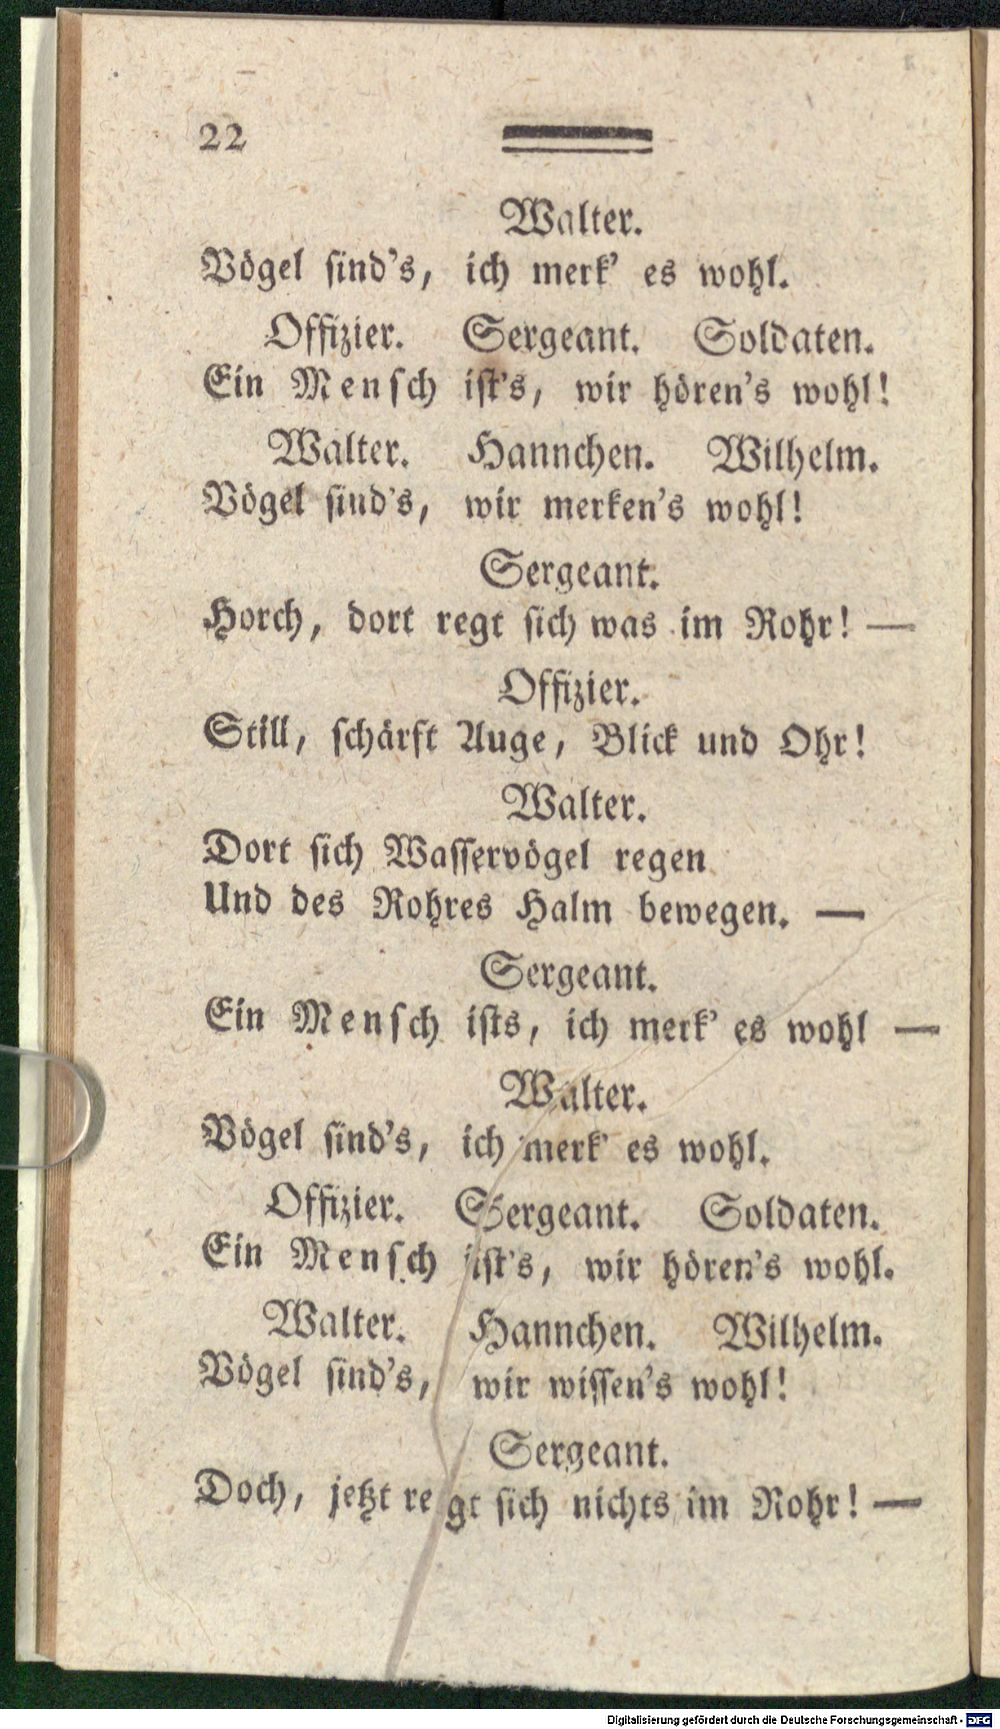 22
Walter.
Vögel sind's, ich merk' es wohl.
Offizier. Sergeant. Soldaten.
Ein Mensch ist's, wir hören's wohl!
Walter. Hannchen. Wilhelm.
Vögel sind's, wir merken's wohl!
Sergeant.
Horch, dort regt sich was im Rohr! —
Offizier.
Still, schärft Auge, Blick und Ohr!
Walter.
Dort sich Wasservögel regen
Und des Rohres Halm bewegen. —
Sergeant.
Ein Mensch ists, ich merk' es wohl —
Walter.
Vögel sind's, ich merk' es wohl.
Offizier. Sergeant. Soldaten.
Ein Mensch ist's, wir hören's wohl.
Walter. Hannchen. Wilhelm.
Vögel sind's, wir wissen's wohl!
Sergeant.
Doch, jetzt regt sich nichts im Rohr! —
Digitalisierung gefördert durch die Deutsche Forschungsgemeinschaft - DFG